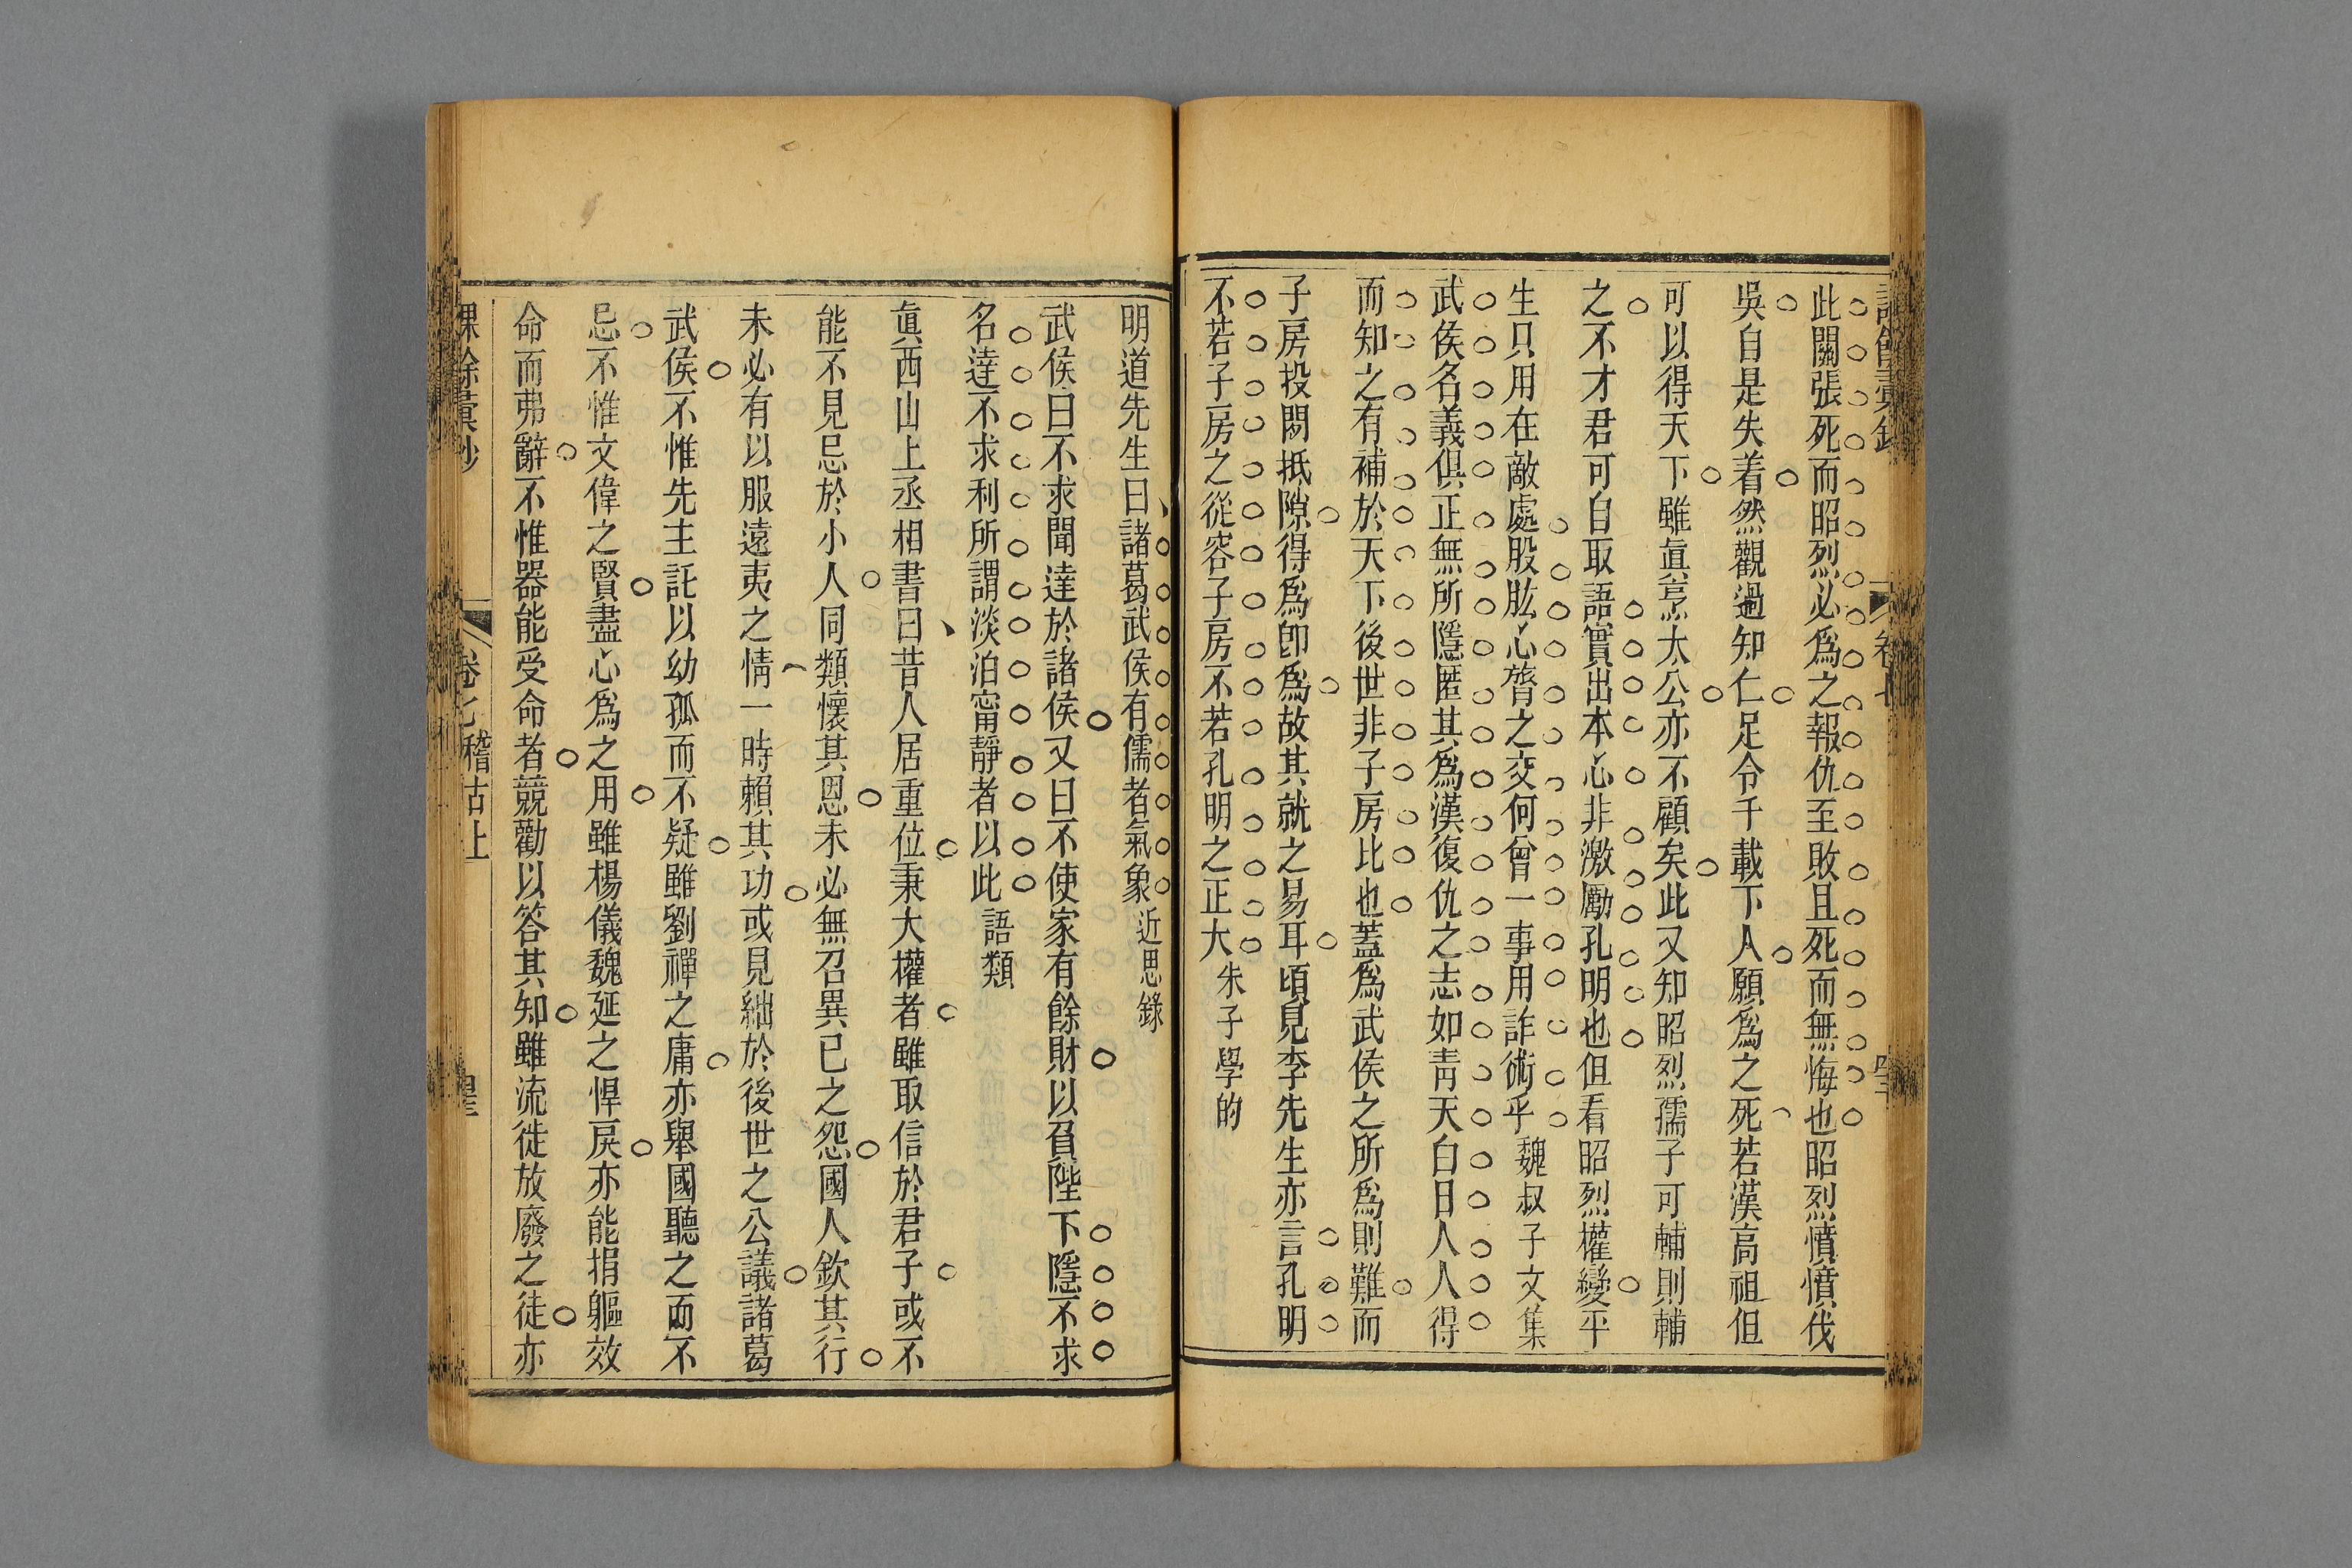 此關張死而昭烈必爲之報仇至敗且死而無悔也昭烈憤憤伐
吳自是失着然觀過知仁足令千載下人願爲之死若漢高祖但
可以得天下雖眞烹太公亦不顧矣此又知昭烈孺子可輔則輔
之不才君可自取語實出本心非激勵孔明也但看昭烈權變平
生只用在敵處股肱心膂之交何曾一事用詐術乎 魏叔子文集
武侯名義俱正無所隱匿其爲漢復仇之志如靑天白日人人得
而知之有補於天下後世非子房比也蓋爲武侯之所爲則難而
子房投閒抵隙得爲卽爲故其就之易耳頃見李先生亦言孔明
不若子房之從容子房不若孔明之正大 朱子學的
明道先生曰諸葛武侯有儒者氣象 近思錄
武侯曰不求聞達於諸侯又曰不使家有餘財以負陛下隱不求
名達不求利所謂淡泊甯靜者以此 語類
眞西山上丞相書曰昔人居重位秉大權者雖取信於君子或不
能不見忌於小人同類懷其恩未必無召異已之怨國人欽其行
未必有以服遠夷之情一時賴其功或見絀於後世之公議諸葛
武侯不惟先主託以幼孤而不疑雖劉禪之庸亦舉國聽之而不
忌不惟文偉之賢盡心爲之用雖楊儀魏延之悍戾亦能捐軀效
命而弗辭不惟器能受命者競勸以答其知雖流徙放廢之徒亦
課餘彙鈔 卷七稽古上